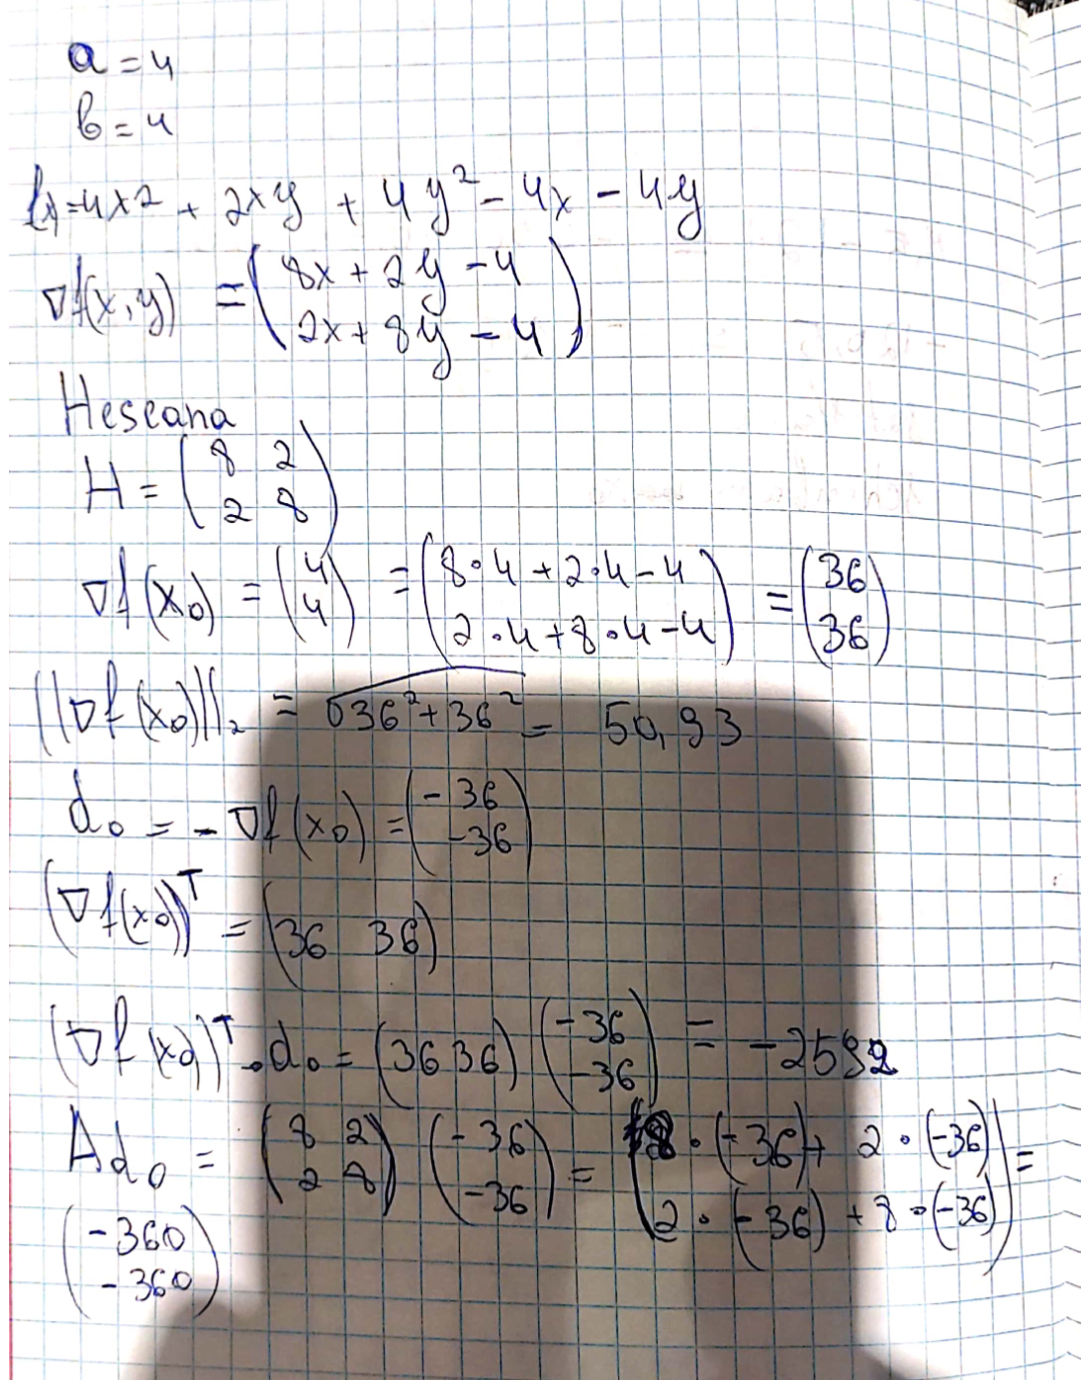 a = 4
b = 4
f(x) = 4x2 + 2xy + 4y² - 4x - 4y
∇f(x,y) = (8x + 2y - 4
2x + 8y - 4)
Heseana
H = (8 2
2 8)
∇f(x₀) = (4 4) = (8·4 + 2·4 - 4
2·4 + 8·4 - 4) = (36
36)
||∇f(x₀)||₂ = √36² + 36² = 50,93
d₀ = - ∇f(x₀) = (-36
-36)
(∇f(x₀))ᵀ = (36 36)
(∇f(x₀))ᵀ · d₀ = (36 36) (-36
-36) = -2592
Ad₀ = (8 2
2 8) (-36
-36) = (8·(-36) + 2·(-36)
2·(-36) + 8·(-36)) =
(-360
-360)